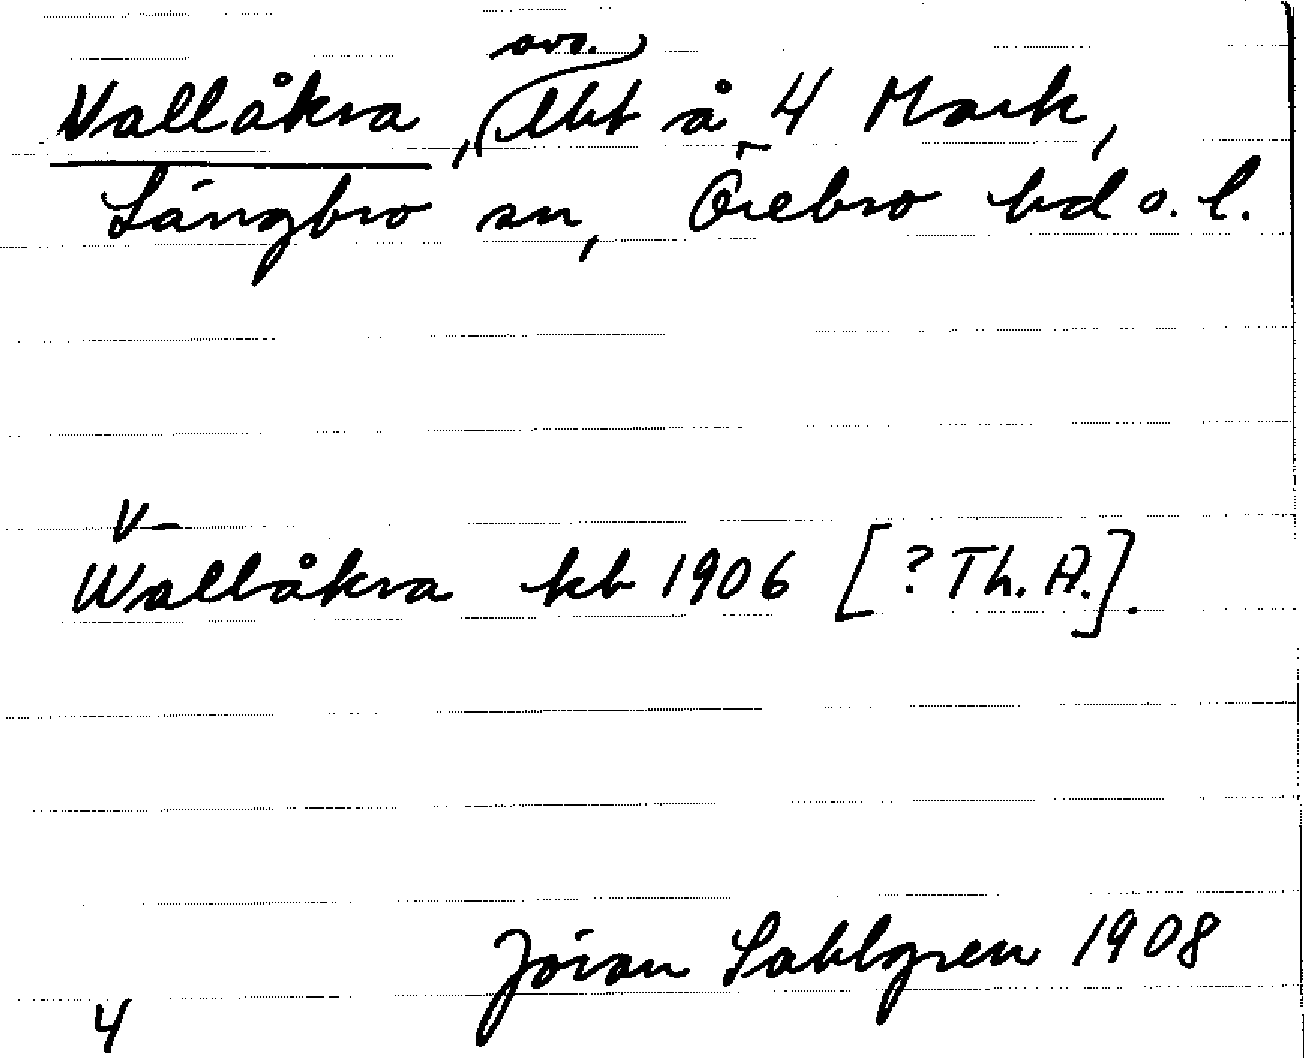 avs.
Vallåkra, lht å 4 Mark,
Längbro sn, Örebro hd o. l.
V-
Wallåkra kb 1906 [? Th. A.].
Jöran Sahlgren 1908
4